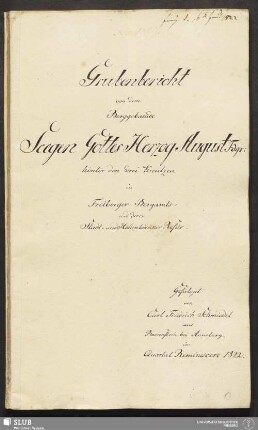 Grubenbericht
von dem
Berggebäude
Seegen Gottes Herzog August Fdgr:
hinter den drei Kreutzen
in
Freiberger Bergamts-
und deren
Stadt- und
Revier
Gefertiget
von
Carl Friedrich Schmiedel
aus
bei
im
Quartal Reminiscere 1822.
SLUB
Wir führen Wissen.